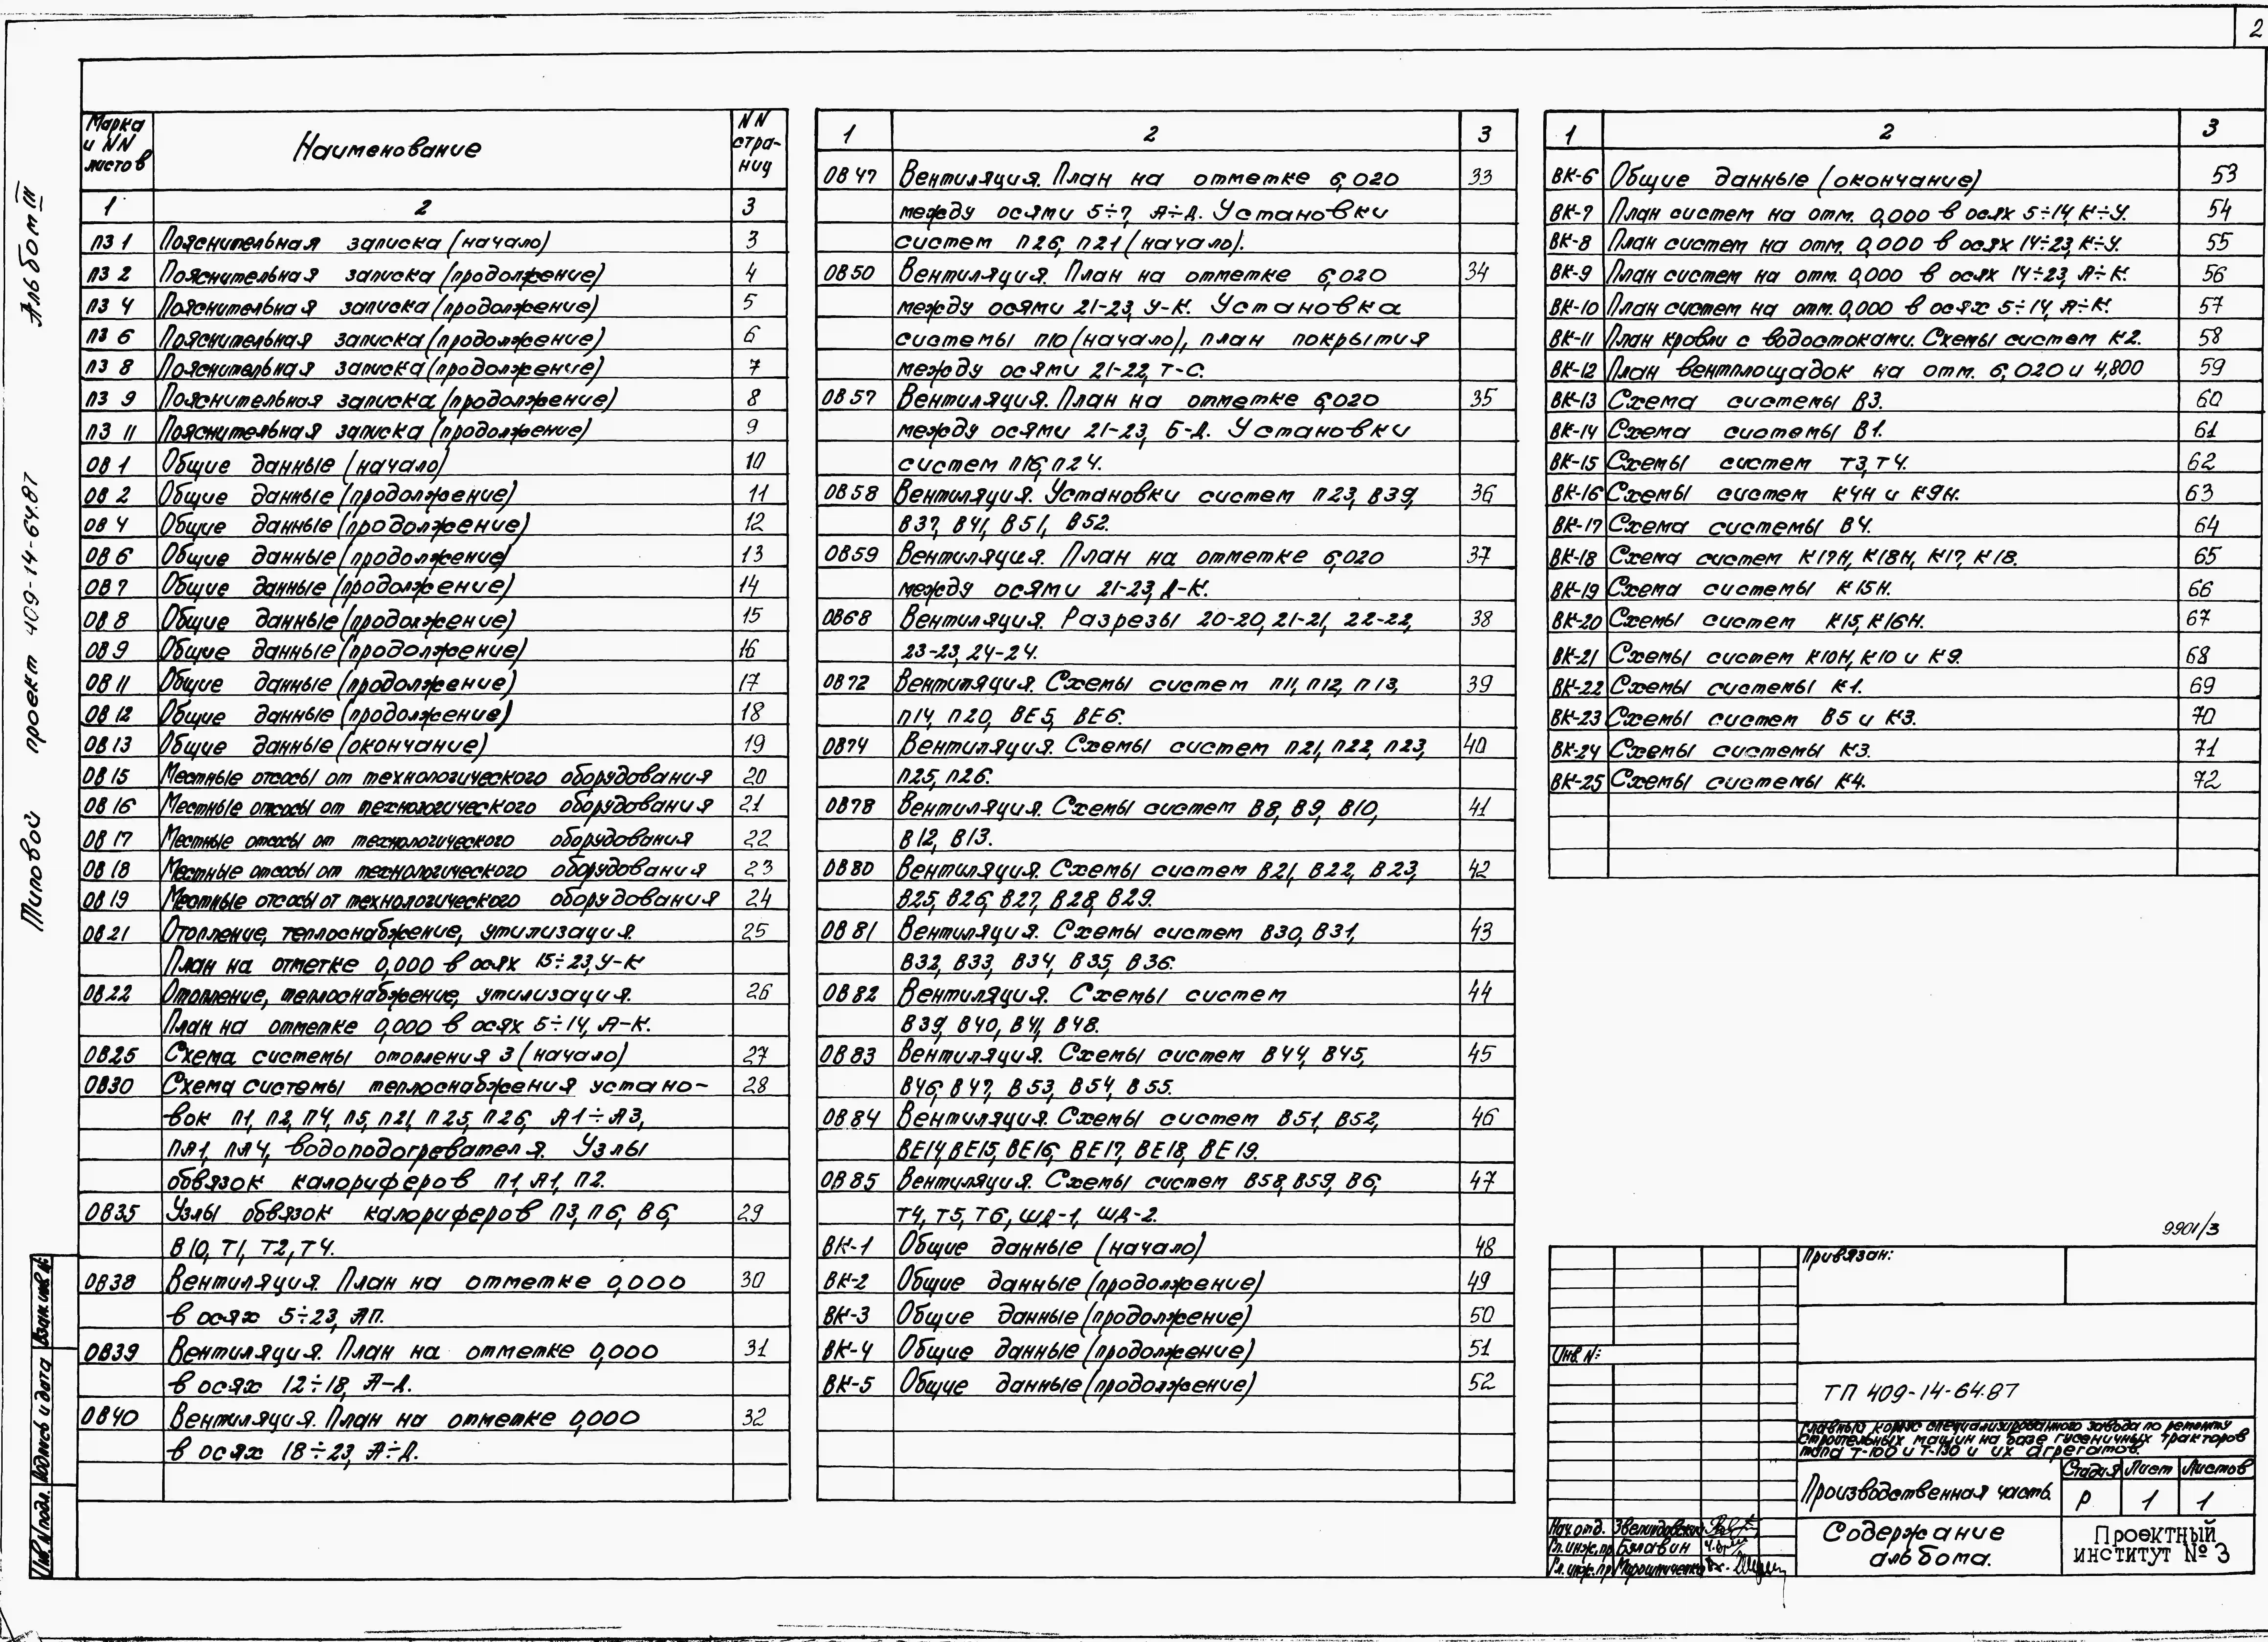 2
Альбом III
Типовой проект 409-14-64.87
Марка и NN листов | Наименование | NN страниц
1 | 2 | 3
ПЗ 1 Пояснительная записка (начало) 3
ПЗ 2 Пояснительная записка (продолжение) 4
ПЗ 4 Пояснительная записка (продолжение) 5
ПЗ 6 Пояснительная записка (продолжение) 6
ПЗ 8 Пояснительная записка (продолжение) 7
ПЗ 9 Пояснительная записка (продолжение) 8
ПЗ 11 Пояснительная записка (продолжение) 9
ОВ 1 Общие данные (начало) 10
ОВ 2 Общие данные (продолжение) 11
ОВ 4 Общие данные (продолжение) 12
ОВ 6 Общие данные (продолжение) 13
ОВ 7 Общие данные (продолжение) 14
ОВ 8 Общие данные (продолжение) 15
ОВ 9 Общие данные (продолжение) 16
ОВ 11 Общие данные (продолжение) 17
ОВ 12 Общие данные (продолжение) 18
ОВ 13 Общие данные (окончание) 19
ОВ 15 Местные отсосы от технологического оборудования 20
ОВ 16 Местные отсосы от технологического оборудования 21
ОВ 17 Местные отсосы от технологического оборудования 22
ОВ 18 Местные отсосы от технологического оборудования 23
ОВ 19 Местные отсосы от технологического оборудования 24
ОВ 21 Отопление, теплоснабжение, утилизация. 25
План на отметке 0,000 в осях 15÷23, У-К
ОВ22 Отопление, теплоснабжение, утилизация. 26
План на отметке 0,000 в осях 5÷14, А-К.
ОВ25 Схема системы отопления 3 (начало) 27
ОВ30 Схема системы теплоснабжения устано- 28
вок П1, П2, П4, П5, П21, П25, П26, А1÷А3,
ПА1, ПА4, водоподогревателя. Узлы
обвязок калориферов П1, А1, П2.
ОВ35 Узлы обвязок калориферов П3, П6, В6, 29
В10, Т1, Т2, Т4.
ОВ38 Вентиляция. План на отметке 0,000 30
в осях 5÷23, АП.
ОВ39 Вентиляция. План на отметке 0,000 31
в осях 12÷18, А-Д.
ОВ40 Вентиляция. План на отметке 0,000 32
в осях 18÷23, А÷Д.
1 | 2 | 3
ОВ 47 Вентиляция. План на отметке 6,020 33
между осями 5÷7, А÷Д. Установки
систем П26, П21 (начало).
ОВ50 Вентиляция. План на отметке 6,020 34
между осями 21-23, У-К. Установка
системы П10 (начало), план покрытия
между осями 21-22, Т-С.
ОВ 57 Вентиляция. План на отметке 6,020 35
между осями 21-23, Б-Д. Установки
систем П16, П24.
ОВ58 Вентиляция. Установки систем П23, В39, 36
В37, В41, В51, В52.
ОВ59 Вентиляция. План на отметке 6,020 37
между осями 21-23, Д-К.
ОВ68 Вентиляция. Разрезы 20-20, 21-21, 22-22, 38
23-23, 24-24.
ОВ72 Вентиляция. Схемы систем П11, П12, П13, 39
П14, П20, ВЕ5, ВЕ6.
ОВ74 Вентиляция. Схемы систем П21, П22, П23, 40
П25, П26.
ОВ78 Вентиляция. Схемы систем В8, В9, В10, 41
В12, В13.
ОВ80 Вентиляция. Схемы систем В21, В22, В23, 42
В25, В26, В27, В28, В29.
ОВ 81 Вентиляция. Схемы систем В30, В31, 43
В32, В33, В34, В35, В36.
ОВ 82 Вентиляция. Схемы систем 44
В39, В40, В41, В48.
ОВ 83 Вентиляция. Схемы систем В44, В45, 45
В46, В47, В53, В54, В55.
ОВ 84 Вентиляция. Схемы систем В51, В52, 46
ВЕ14, ВЕ15, ВЕ16, ВЕ17, ВЕ18, ВЕ19.
ОВ 85 Вентиляция. Схемы систем В58, В59, В6, 47
Т4, Т5, Т6, ША-1, ША-2.
ВК-1 Общие данные (начало) 48
ВК-2 Общие данные (продолжение) 49
ВК-3 Общие данные (продолжение) 50
ВК-4 Общие данные (продолжение) 51
ВК-5 Общие данные (продолжение) 52
1 | 2 | 3
ВК-6 Общие данные (окончание) 53
ВК-7 План систем на отм. 0,000 в осях 5÷14, К÷У. 54
ВК-8 План систем на отм. 0,000 в осях 14÷23, К÷У. 55
ВК-9 План систем на отм. 0,000 в осях 14÷23, А÷К. 56
ВК-10 План систем на отм. 0,000 в осях 5÷14, А÷К. 57
ВК-11 План кровли с водостоками. Схемы систем К2. 58
ВК-12 План вентплощадок на отм. 6,020 и 4,800 59
ВК-13 Схема системы В3. 60
ВК-14 Схема системы В1. 61
ВК-15 Схемы систем Т3, Т4. 62
ВК-16 Схемы систем К4Н и К9Н. 63
ВК-17 Схема системы В4. 64
ВК-18 Схема систем К17Н, К18Н, К17, К18. 65
ВК-19 Схема системы К15Н. 66
ВК-20 Схемы систем К15, К16Н. 67
ВК-21 Схемы систем К10Н, К10 и К9. 68
ВК-22 Схемы системы К1. 69
ВК-23 Схемы систем В5 и К3. 70
ВК-24 Схемы системы К3. 71
ВК-25 Схемы системы К4. 72
9901/3
Привязан:
Инв. N:
ТП 409-14-64.87
Главный корпус специализированного завода по ремонту
строительных машин на базе гусеничных тракторов
типа Т-100 и Т-130 и их агрегатов.
Производственная часть.
Стадия Лист Листов
Р 1 1
Содержание
альбома.
Проектный
институт №3
Нач. отд.
Гл. инж. пр. Балавин
Гл. инж. пр.
Инв. N подл. Подпись и дата Взам. инв. N